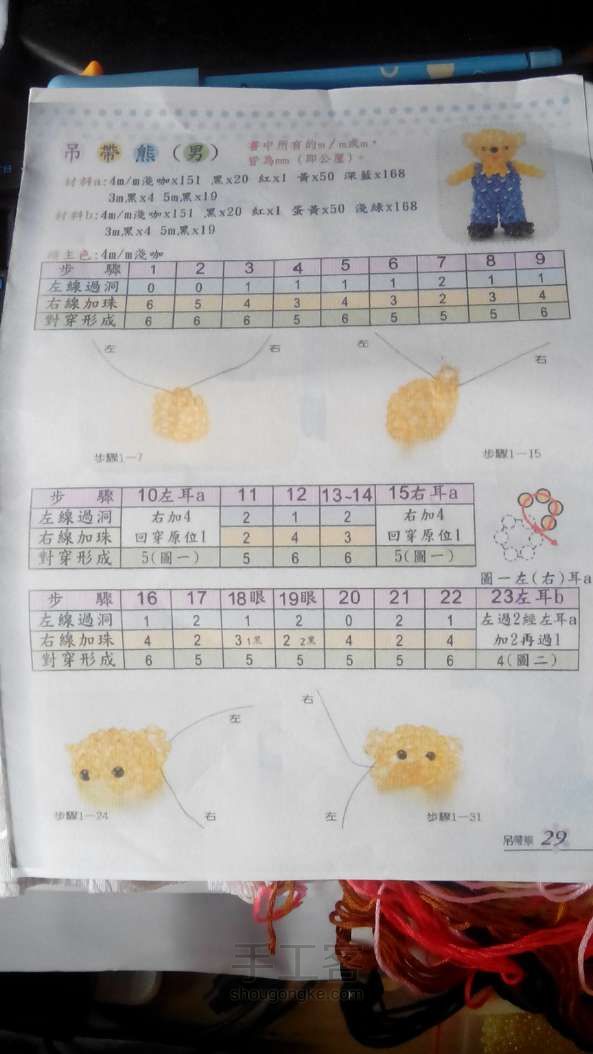 吊帶熊(男)
書中所有的m/m或m,
皆為mm(即公厘)。
材料a:4m/m淺咖x151 黑x20 紅x1 黃x50 深藍x168
3m黑x4 5m黑x19
材料b:4m/m淺咖x151 黑x20 紅x1 蛋黃x50 淺綠x168
3m黑x4 5m黑x19
主色:4m/m淺咖
步驟 1 2 3 4 5 6 7 8 9
左線過洞 0 0 1 1 1 1 2 1 1
右線加珠 6 5 4 3 4 3 2 3 4
對穿形成 6 6 6 5 6 5 5 5 6
左 右 左 右
步驟1—7 步驟1—15
步驟 10左耳a 11 12 13~14 15右耳a
左線過洞 右加4 2 1 2 右加4
右線加珠 回穿原位1 2 4 3 回穿原位1
對穿形成 5(圖一) 5 6 6 5(圖一)
圖一左(右)耳a
步驟 16 17 18眼 19眼 20 21 22 23左耳b
左線過洞 1 2 1 2 0 2 1 左過2經左耳a
右線加珠 4 2 3 1黑 2 2黑 4 2 4 加2再過1
對穿形成 6 5 5 5 5 5 6 4(圖二)
左 右 右 左
步驟1—24 步驟1—31
吊帶熊 29
手工客
shougongke.com